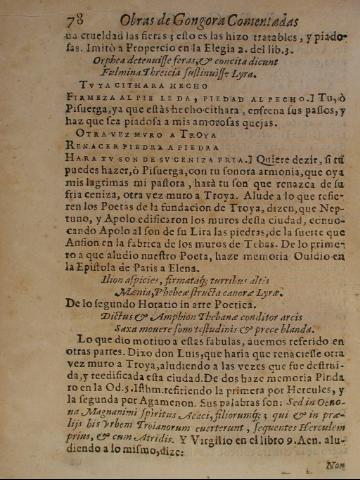 78 Obras de Gongora Comentadas
ua crueldad las fieras; esto es las hizo tratables, y piado-
sas. Imitò a Propercio en la Elegia 2. del lib. 3.
Orphea detenuisse feras, & concita dicunt
Fulmina Threicia sustinuisse Lyra.
TVYA CITHARA HECHO
FIRMEZA AL PIE LE DA, PIEDAD AL PECHO.] Tu, ò
Pisuerga, ya que estàs hecho cithara, enseena sus passos, y
haz que sea piadosa a mis amorosas quejas.
OTRA VEZ MVRO A TROYA
RENACER PIEDRA A PIEDRA
HARA TV SON DE SV CENIZA FRIA.] Quiere dezir, si tu
puedes hazer, ò Pisuerga, con tu sonora armonia, que oya
mis lagrimas mi pastora, harà tu son que renazca de su
fria ceniza, otra vez muro a Troya. Alude a lo que refie-
ren los Poetas de la fundacion de Troya, dizen, que Nep-
tuno, y Apolo edificaron los muros desta ciudad, conuo-
cando Apolo al son de su Lira las piedras, de la suerte que
Anfion en la fabrica de los muros de Tebas. De lo prime-
ro a que aludio nuestro Poeta, haze memoria Ouidio en
la Epistola de Paris a Elena.
Ilion aspicies, firmataq; turribus altis
Mœnia, Phebeæ structa canoræ Lyræ.
De lo segundo Horatio in arte Poetica.
Dictus & Amphion Thebanæ conditor arcis
Saxa mouere sono testudinis & prece blanda.
Lo que dio motiuo a estas fabulas, auemos referido en
otras partes. Dixo don Luis, que haria que renaciesse otra
vez muro a Troya, aludiendo a las veces que fue destrui-
da, y reedificada esta ciudad. De dos haze memoria Pinda
ro en la Od. 5. Isthm. refiriendo la primera por Hercules, y
la segunda por Agamenon. Sus palabras son: Sed in Oeno-
na Magnanimi spiritus Aeaci, filiorumq; qui & in præ-
lijs bis Vrbem Troianorum euerterunt, sequentes Herculem
prius, & cum Atridis. Y Virgilio en el libro 9. Aen. alu-
diendo a lo mismo, dize:
Non